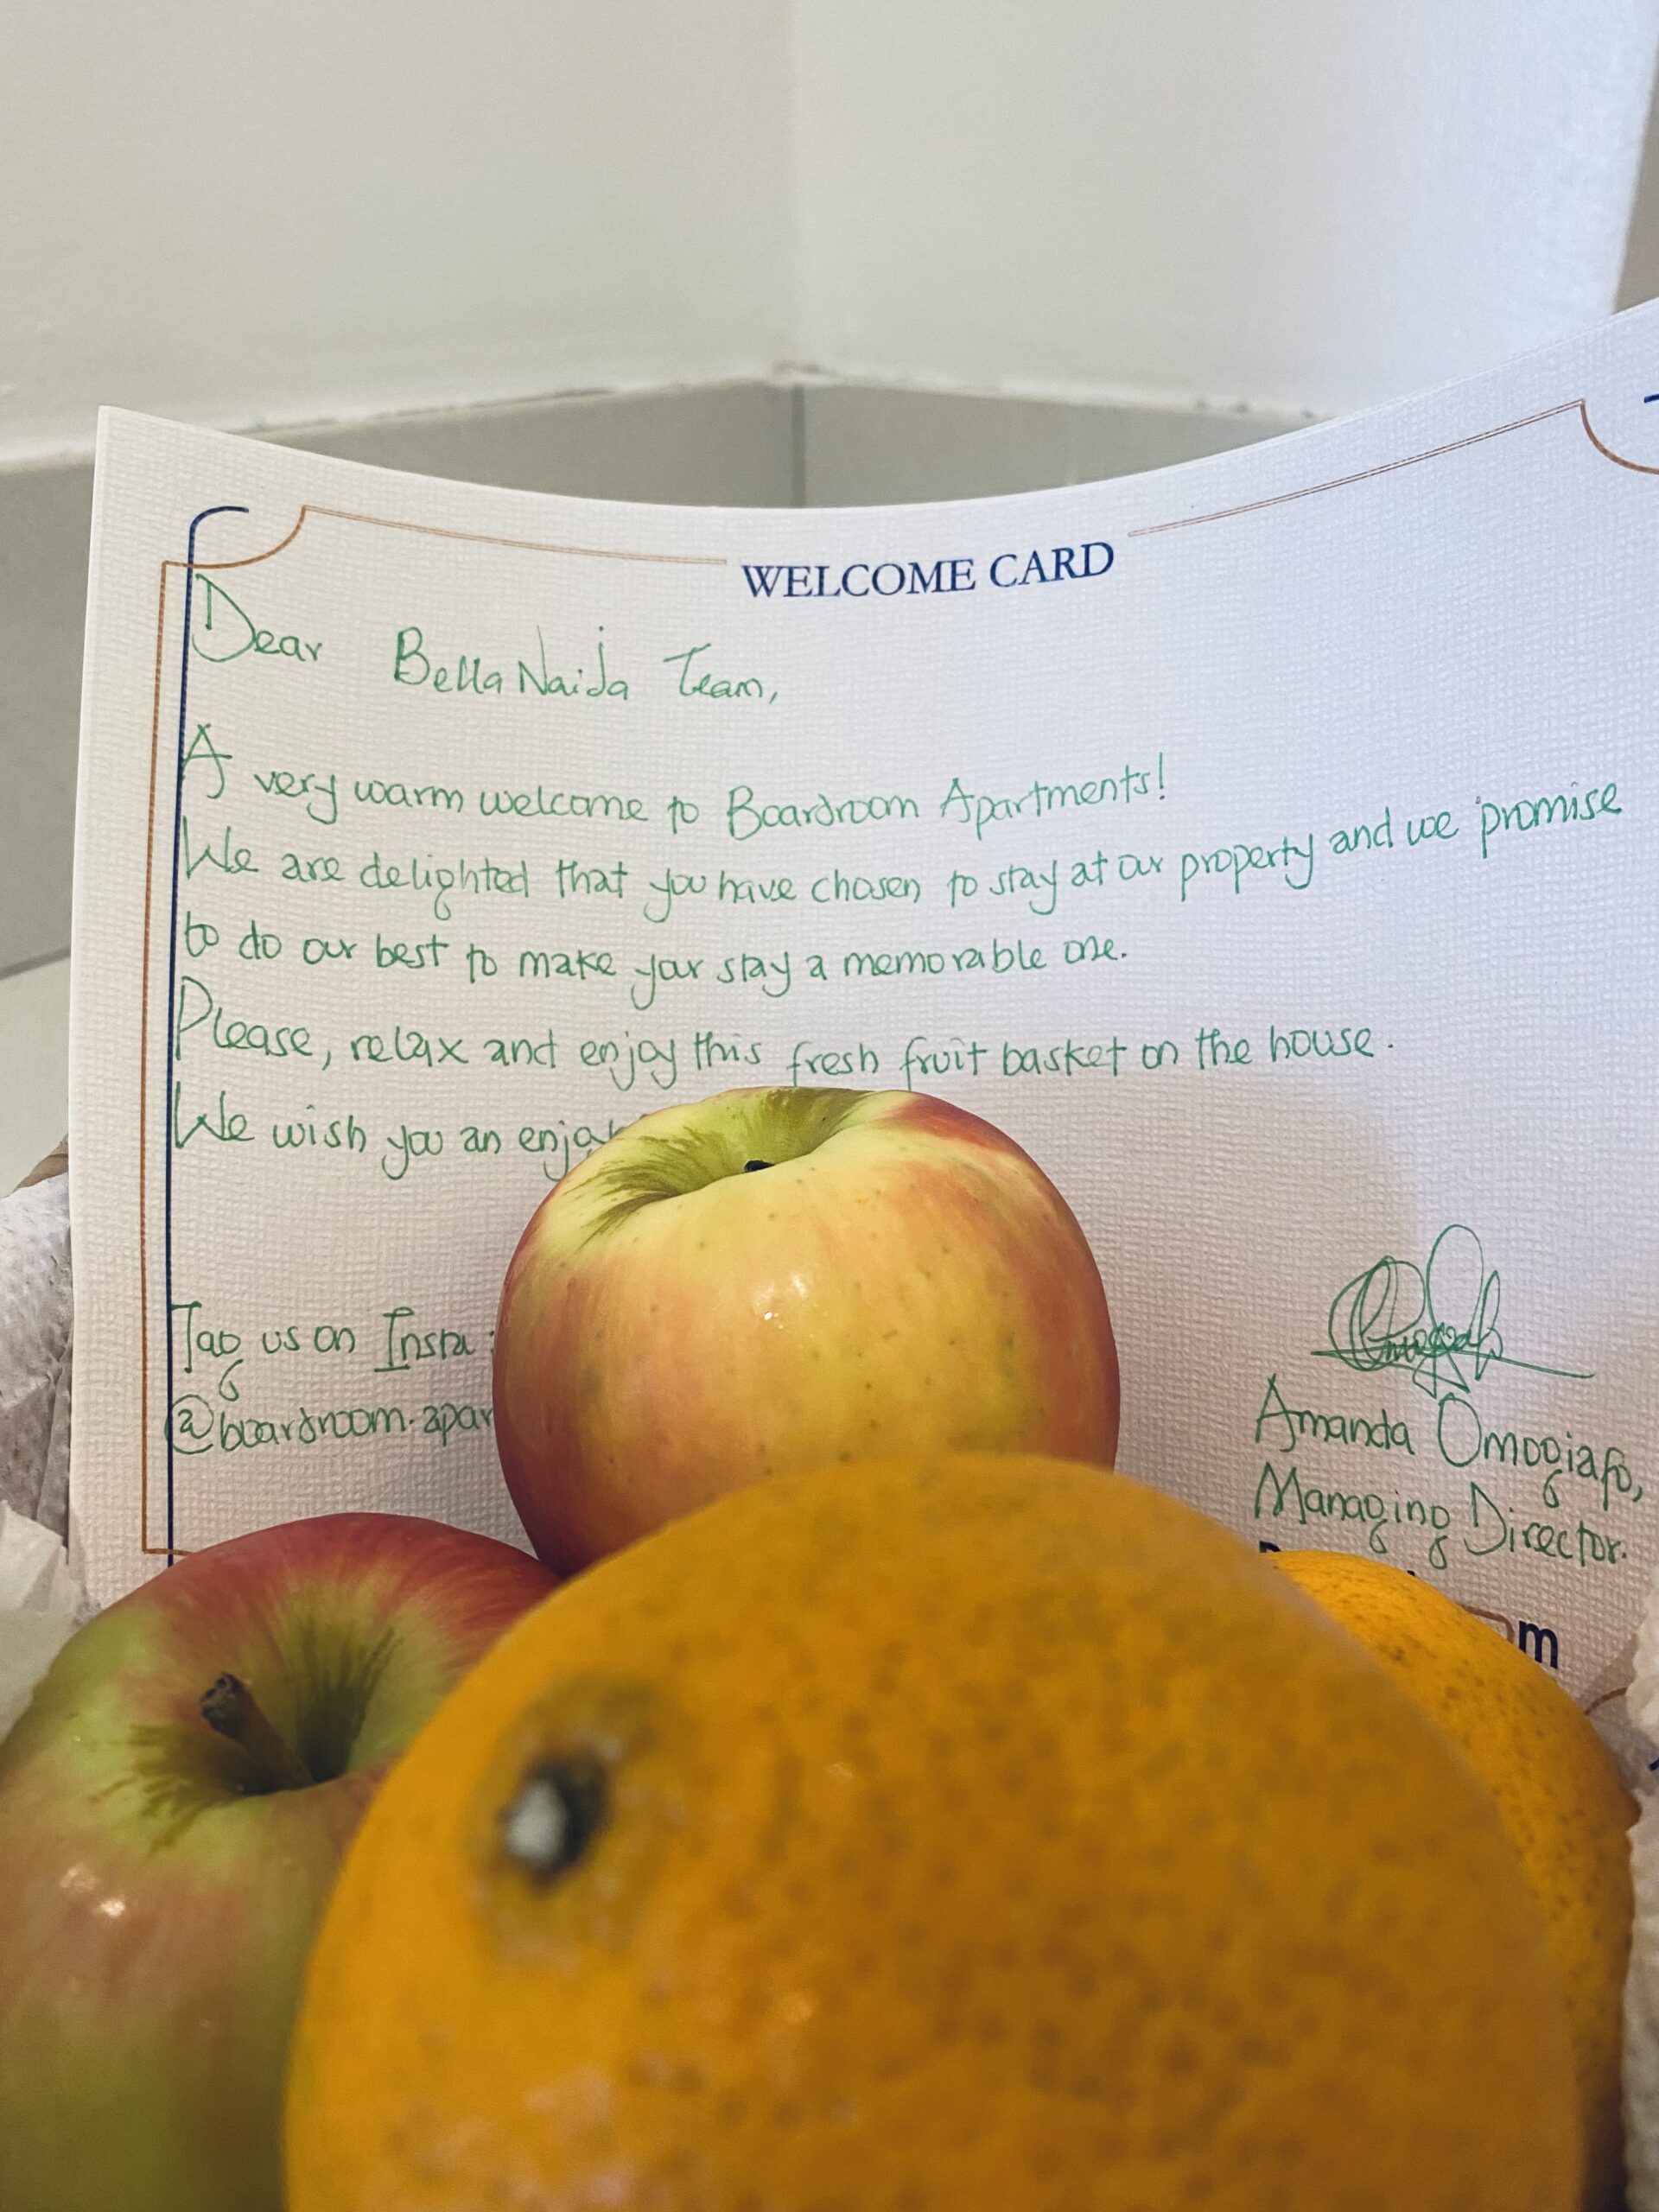 WELCOME CARD
Dear BellaNaija Team,
A very warm welcome to Boardroom Apartments!
We are delighted that you have chosen to stay at our property and we promise
to do our best to make your stay a memorable one.
Please, relax and enjoy this fresh fruit basket on the house.
We wish you an
Tag us on Insta:
Amanda Omogiafo,
Managing Director.